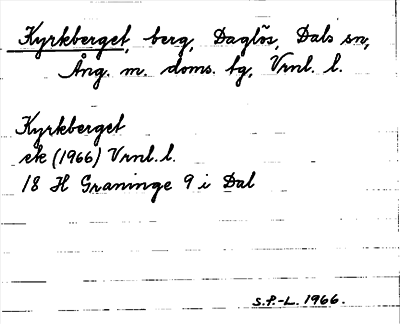 Kyrkberget, berg, Daglös, Dals sn,
Ång. m. doms. tg, Vrnl. l.
Kyrkberget
ek (1966) Vrnl. l.
18 H Graninge 9 i Dal
S.P.-L. 1966.